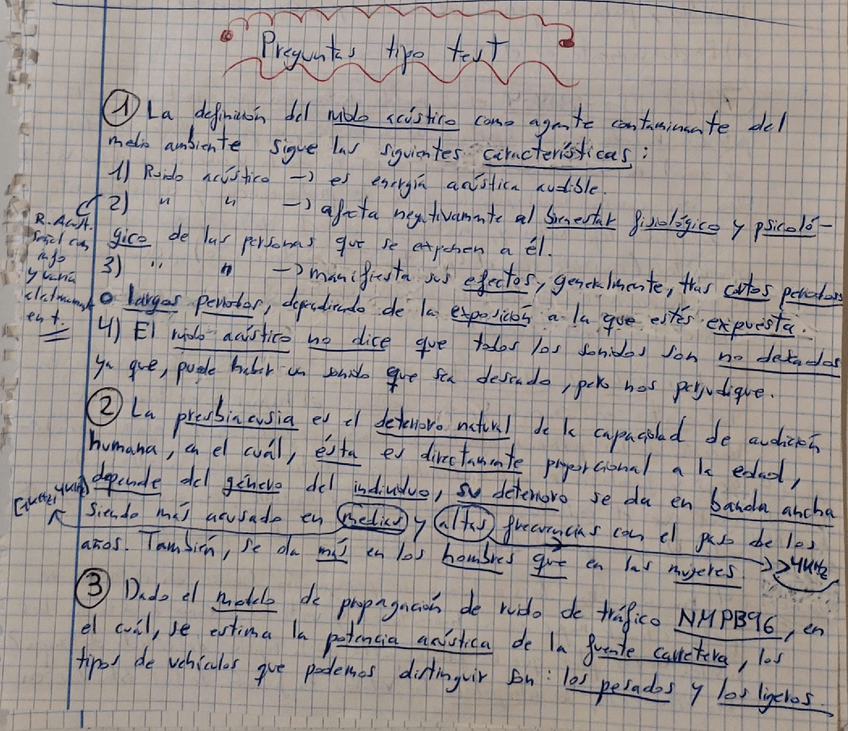 Preguntas tipo test
① La definición del ruido acústico como agente contaminante del
medio ambiente sigue las siguientes características:
1) Ruido acústico → es energía acústica audible.
2) " " → afecta negativamente al bienestar fisiológico y psicoló-
gico de las personas que se exponen a él.
3) " " → manifiesta sus efectos, generalmente, tras cortos periodos
o largos periodos, dependiendo de la exposición a la que estés expuesta.
4) El ruido acústico no dice que todos los sonidos son no deseados
ya que, puede haber un sonido que sea deseado, pero nos perjudique.
R. Acúst.
señal con
info
y varía
aleatoriamente
en t.
② La presbiacusia es el deterioro natural de la capacidad de audición
humana, en el cuál, ésta es directamente proporcional a la edad,
depende del género del individuo, su deterioro se da en banda ancha
siendo más acusado en medias y altas frecuencias con el paso de los
años. También, se da más en los hombres que en las mujeres.
>4KHz
③ Dado el modelo de propagación de ruido de tráfico NMPB96, en
el cuál, se estima la potencia acústica de la fuente carretera, los
tipos de vehículos que podemos distinguir son: los pesados y los ligeros.